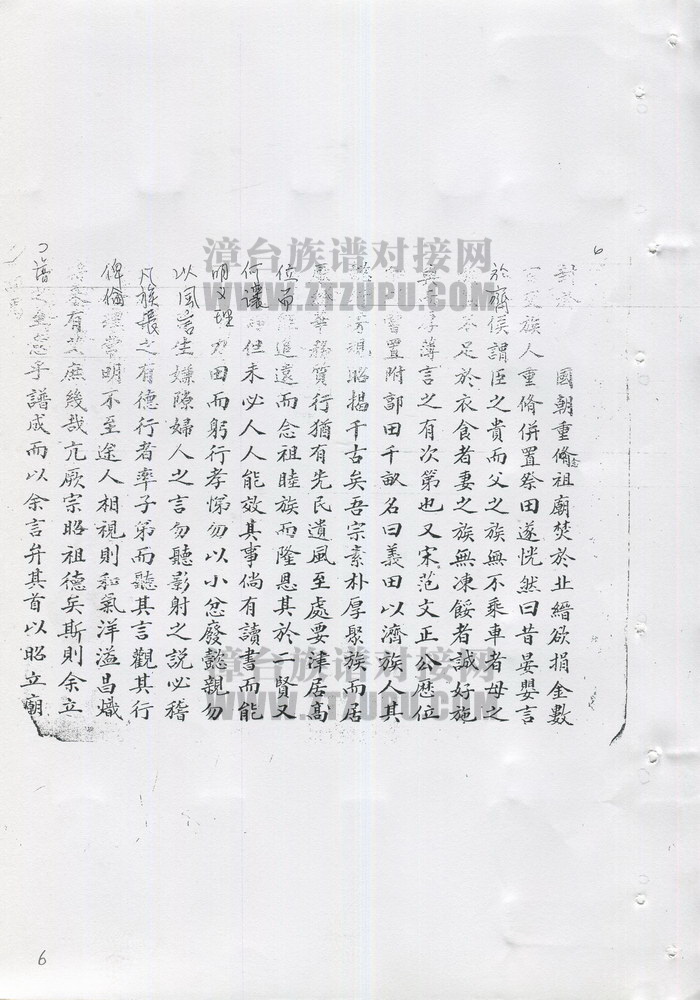 國朝重脩祖廟焚於止緡欲捐金數
族人重脩併置祭田遂恍然曰昔晏嬰言
於齊侯謂臣之貴而父之族無不乘車者母之
不足於衣食者妻之族無凍餒者誠好施
薄言之有次第也又宋范文正公歷位
置附郭田千畝名曰義田以濟族人其
規昭揭千古矣吾宗素朴厚聚族而居
華務質行猶有先民遺風至處要津居高
位而 追遠而念祖睦族而隆恩其於二賢又
何讓 但未必人人能效其事倘有讀書而能
明义理 田而躬行孝悌勿以小忿廢懿親勿
以風言生嫌隙婦人之言勿聽影射之説必稽
凡族長之有德行者率子弟而聽其言觀其行
俾倫理常明不至途人相視則和氣洋溢昌熾
有艾庶幾哉亢厥宗昭祖德矣斯則余立
譜之 意乎譜成而以余言弁其首以昭立廟
6
6
漳台族谱对接网
WWW.ZTZUPU.COM
漳台族谱对接网
WWW.ZTZUPU.COM